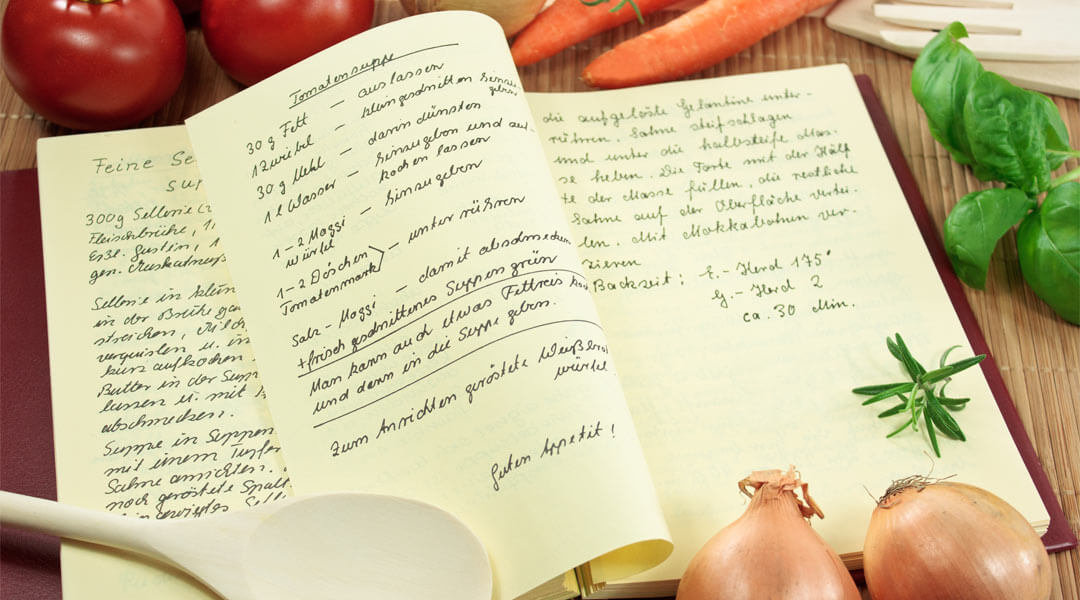 Feine Se
sup
300g Sellerie
Fleischbrühe, 1
Essl. Gustin, 1
gen. Muskatnuß
Sellerie in klein
in der Brühe ga
streichen, Milch
verquirlen u. in
kurz aufkochen
Butter in der Supp
lassen u. mit
abschmecken.
Suppe in Suppen
mit einem Tupfer
Sahne anrichten.
noch geröstete Spalt
Tomatensuppe
30 g Fett - auslassen
1 Zwiebel - kleingeschnitten hinzu
geben
30 g Mehl - darin dünsten
1 l Wasser - hinzugeben und auf-
kochen lassen
1-2 Maggi - hinzugeben
würfel
1-2 Döschen - unter rühren
Tomatenmark
Salz - Maggi - damit abschmecken
+ frisch geschnittenes Suppen grün
Man kann auch etwas Fettreis koch
und dann in die Suppe geben.
Zum Anrichten geröstete Weißbrot
würfel
Guten Appetit!
die aufgelöste Gelantine unter-
rühren. Sahne steifschlagen
und unter die halbsteife Mas.
se heben. Die Torte mit der Hälf
te der Masse füllen, die restliche
Sahne auf der Oberfläche vertei-
len. Mit Mokkabohnen ver.
zieren
Backzeit: E.-Herd 175°
G.-Herd 2
ca. 30 Min.